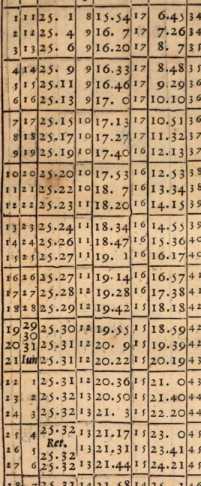 1 11 25. 1 8 15.54 17 6.45 34
2 12 25. 4 9 16. 7 17 7.26 34
3 13 25. 6 9 16.20 17 8. 7 35
4 14 25. 9 9 16.33 8.48 35
5 15 25.11 9 16.46 17 9.29 36
6 16 25.13 9 17. 0 17 10.10 36
7 17 25.15 10 17.13 17 10.51 36
8 18 25.17 10 17.27 17 11.32 37
9 19 25.19 10 17.40 16 12.13 37
10 20 25.20 10 17.53 16 12.53 38
11 21 25.22 10 18. 7 16 13.34 38
12 22 25.23 11 18.20 16 14.15 39
13 23 25.24 11 18.34 16 14.55 39
14 24 25.26 11 18.47 16 15.36 40
15 25 25.27 11 19. 1 16 16.17 40
16 26 25.27 11 19.14 16 16.57 41
17 27 25.28 12 19.28 16 17.38 41
18 28 25.29 12 19.42 15 18.18 42
19 29 25.30 12 19.55 15 18.59 42
30
20 31 25.31 12 20. 9 15 19.39 42
21 Iun 25.31 12 20.22 15 20.19 43
22 1 25.31 12 20.36 15 21. 0 43
23 2 25.32 13 20.50 15 21.40 44
24 3 25.32 13 21. 3 15 22.20 44
25 4 25.32 13 21.17 15 23. 0 45
Ret.
26 5 25.32 13 21.31 15 23.41 45
27 6 25.32 13 21.44 15 24.21 45